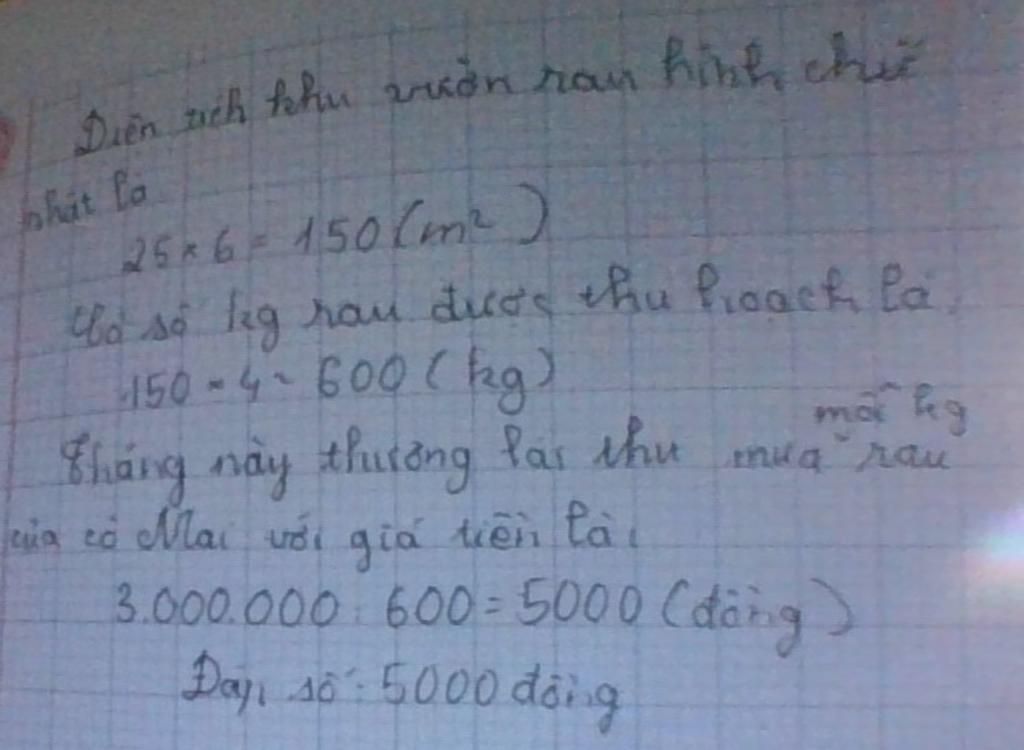 Diện tích khu vườn rau hình chữ
nhật là
25 × 6 = 150 (m²)
Có số kg rau được thu hoạch là
150 × 4 = 600 (kg)
mỗi kg
Tháng này thương lái thu mua rau
của cô Mai với giá tiền là
3.000.000 : 600 = 5000 (đồng)
Đáp số : 5000 đồng